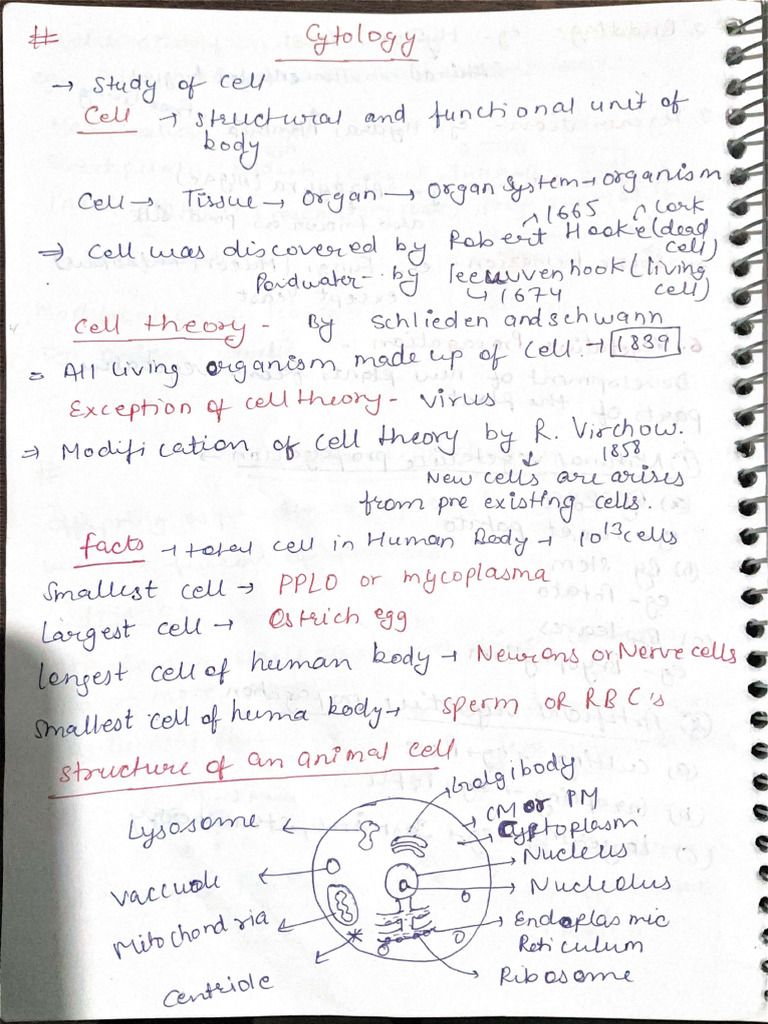 # Cytology
→ Study of cell
Cell → structural and functional unit of
body
Cell → Tissue → organ → organ System → organism
→ 1665 → cork
⇒ Cell was discovered by Robert Hooke (dead
cell)
Pondwater - by leeuwvenhook (living
cell)
↳ 1674
Cell theory - By Schlieden and schwann
= All living organism made up of cell → 1839
Exception of cell theory - virus
⇒ Modification of cell theory by R. Virchow.
1858
↓
New cells are arises
from pre existing cells.
facts → total cell in Human Body → 10¹³ cells
Smallest cell → PPLO or mycoplasma
Largest cell → Ostrich egg
longest cell of human body → Neurons or Nerve cells
smallest cell of huma body → sperm or RBC's
structure of an animal cell
Golgibody
CM or PM
Lysosome
Cyptoplasm
Nucleus
Vaccuole
Nucleolus
Mitochondria
Endoplasmic
Reticulum
Centriole
Ribosome